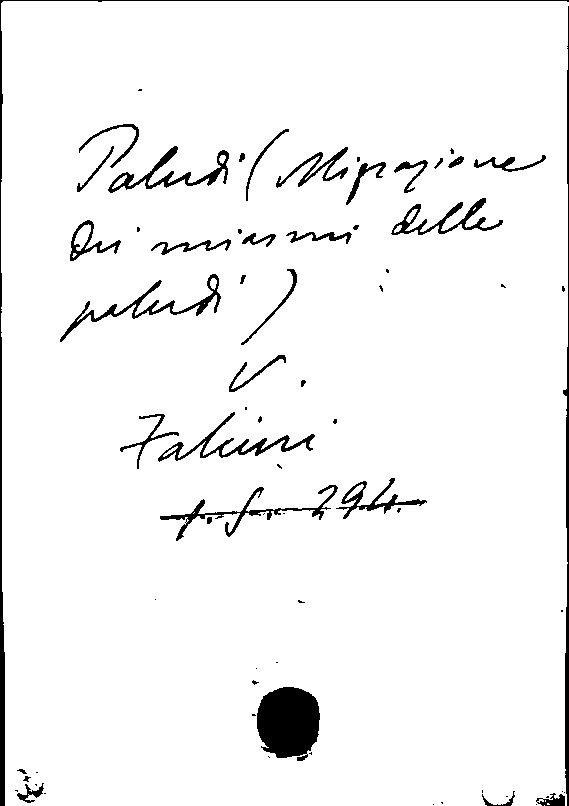 Paludi (Migrazione
dei miasmi delle
paludi)
V.
294.